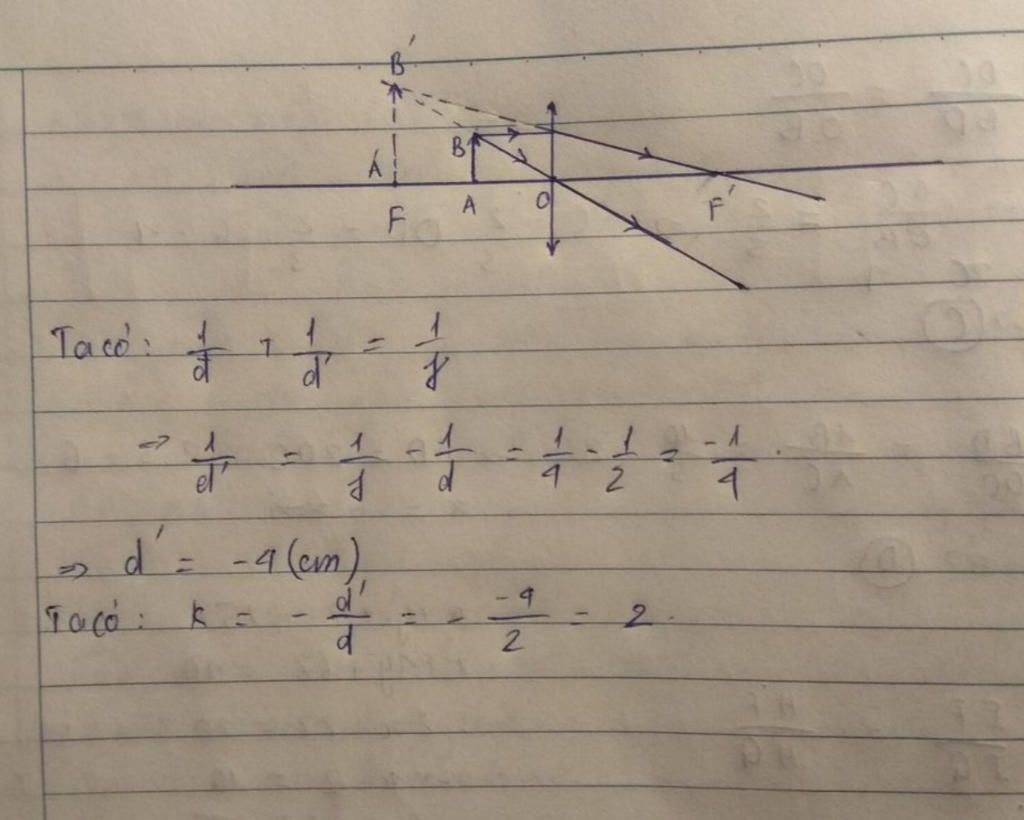 B'
B
A'
F
A
O
F'
Ta có: 1/d + 1/d' = 1/f
=> 1/d' = 1/f - 1/d = 1/4 - 1/2 = -1/4.
=> d' = -4 (cm)
Ta có: k = - d'/d = - -4/2 = 2.